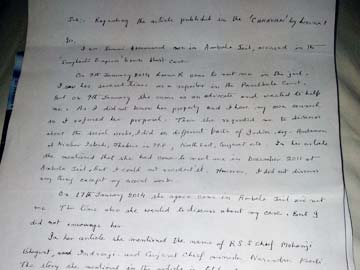 Sub:- Regarding the article published in the 'CARAVAN' by Leena!
Sir,
I am Swami Aseemanand now in Ambala Jail, accused in the
Samjhauta Express Bomb Blast case.
On 9th January 2014 Leena K came to met me in the jail.
I saw her several times as a reporter in the Panchkula Court.
But on 9th January, she came as an advocate and wanted to help
me. As I did not know her properly and I have my own counsel
so I refused her proposal. Then she requested me to discuss
about the social works, I did in different parts of India, eg. Andaman
& Nicobar Islands, Jhabua in M.P., North East, Gujarat etc. In her article
she mentioned that she had come to meet me in December 2011 at
Ambala Jail, but I could not recollect it. However, I did not discuss
any thing except my social work.
On 17th January 2014, she again came in Ambala Jail and met
me. This time also she wanted to discuss about my case. But I
did not encourage her.
In her article she mentioned the name of R.S.S Chief Mohanji
Bhagwat, and Indreshji and Gujarat Chief minister Narendra Modi
The story she mentioned in the article is